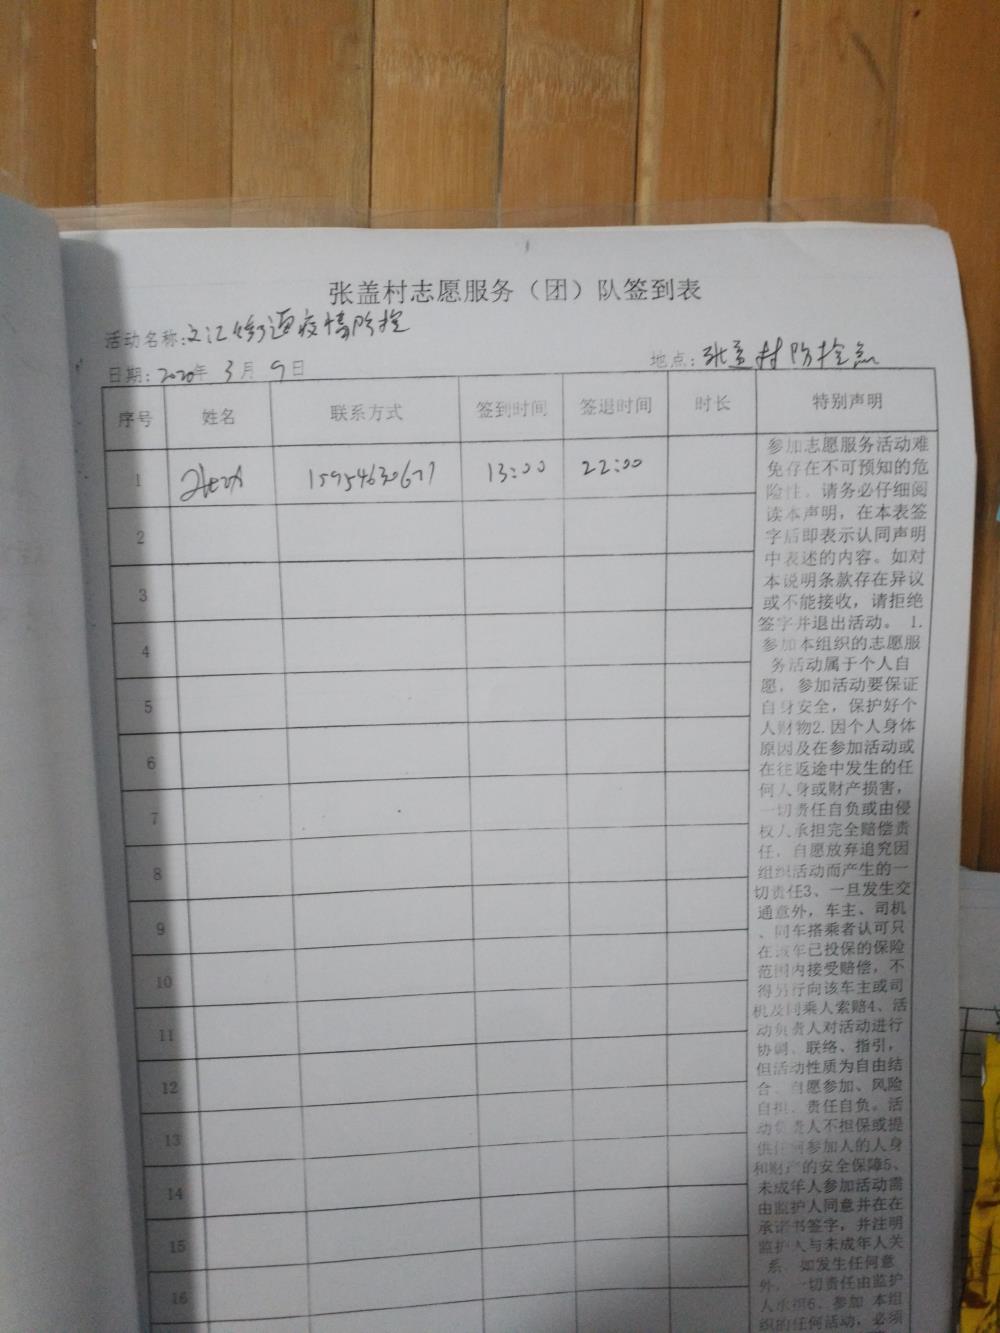 张盖村志愿服务（团）队签到表
活动名称:文汇街道疫情防控
日期: 2020年 3月 9日
地点: 张盖村防控点
序号 姓名 联系方式 签到时间 签退时间 时长 特别声明
1 15954630677 13:00 22:00
2
3
4
5
6
7
8
9
10
11
12
13
14
15
16
参加志愿服务活动难
免存在不可预知的危
险性，请务必仔细阅
读本声明，在本表签
字后即表示认同声明
中表述的内容。如对
本说明条款存在异议
或不能接收，请拒绝
签字并退出活动。 1.
参加本组织的志愿服
务活动属于个人自
愿，参加活动要保证
自身安全，保护好个
人财物2.因个人身体
原因及在参加活动或
在往返途中发生的任
何人身或财产损害，
一切责任自负或由侵
权人承担完全赔偿责
任，自愿放弃追究因
组织活动而产生的一
切责任3、一旦发生交
通意外，车主、司机
、同车搭乘者认可只
在该车已投保的保险
范围内接受赔偿，不
得另行向该车主或司
机及同乘人索赔4、活
动负责人对活动进行
协调、联络、指引，
但活动性质为自由结
合、自愿参加、风险
自担、责任自负。活
动负责人不担保或提
供任何参加人的人身
和财产的安全保障5、
未成年人参加活动需
由监护人同意并在在
承诺书签字，并注明
监护人与未成年人关
系，如发生任何意
外，一切责任由监护
人承担6、参加 本组
织的任何活动，必须